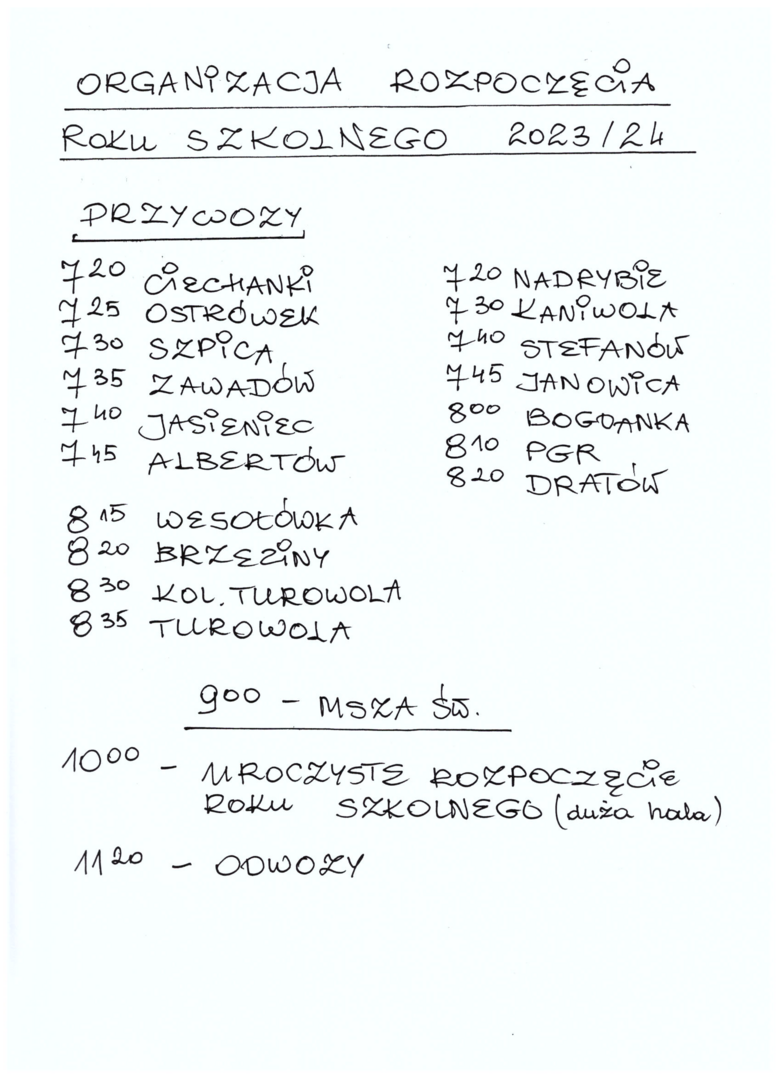 ORGANIZACJA ROZPOCZĘCIA
ROKU SZKOLNEGO 2023/24
PRZYWOZY
7 20 CIECHANKI
7 25 OSTRÓWEK
7 30 SZPICA
7 35 ZAWADÓW
7 40 JASIENIEC
7 45 ALBERTÓW
8 15 WESOŁÓWKA
8 20 BRZEZINY
8 30 KOL. TUROWOLA
8 35 TUROWOLA
7 20 NADRYBIE
7 30 KANIWOLA
7 40 STEFANÓW
7 45 JANOWICA
8 00 BOGDANKA
8 10 PGR
8 20 DRATÓW
9 00 - MSZA ŚW.
10 00 - UROCZYSTE ROZPOCZĘCIE
ROKU SZKOLNEGO (duża hala)
11 20 - ODWOZY